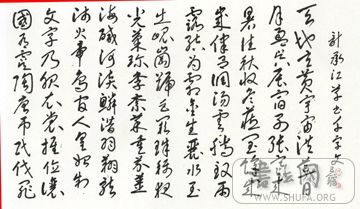 计承江草书千字文
天地玄黄宇宙洪荒日
月盈昃辰宿列张寒来
暑往秋收冬藏闰余成
岁律吕调阳云腾致雨
露结为霜金生丽水玉
出崑岗剑号巨阙珠称夜
光果珍李柰菜重芥姜
海咸河淡鳞潜羽翔龙
师火帝鸟官人皇始制
文字乃服衣裳推位让
國有虞陶唐吊民伐罪
WWW.SHUFA.ORG